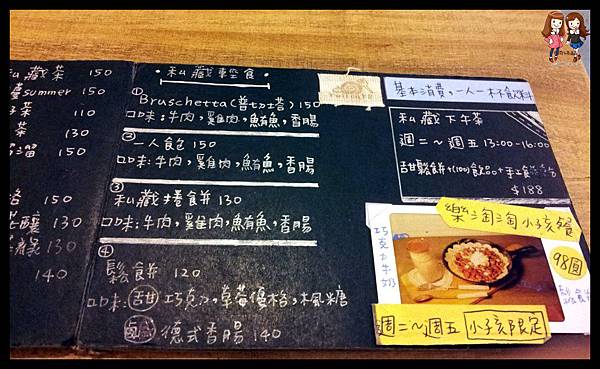 私藏茶 150
summer 150
茶 110
茶 130
溜 150
150
釀 130
130
140
•私藏輕食•
① Bruschetta(普切塔) 150
口味:牛肉,雞肉,鮪魚,香腸
② 一人食包 150
口味:牛肉,雞肉,鮪魚,香腸
③ 私藏捲餅 130
口味:牛肉,雞肉,鮪魚,香腸
④ 鬆餅 120
口味:甜 巧克力,草莓優格,楓糖
鹹 德式香腸 140
基本消費,一人一杯飲料
私藏下午茶
週二~週五 13:00-16:00
甜鬆餅+(100)飲品+手工餅
$188
樂淘淘小孩餐
98圓
巧克力牛奶
週二~週五 小孩限定